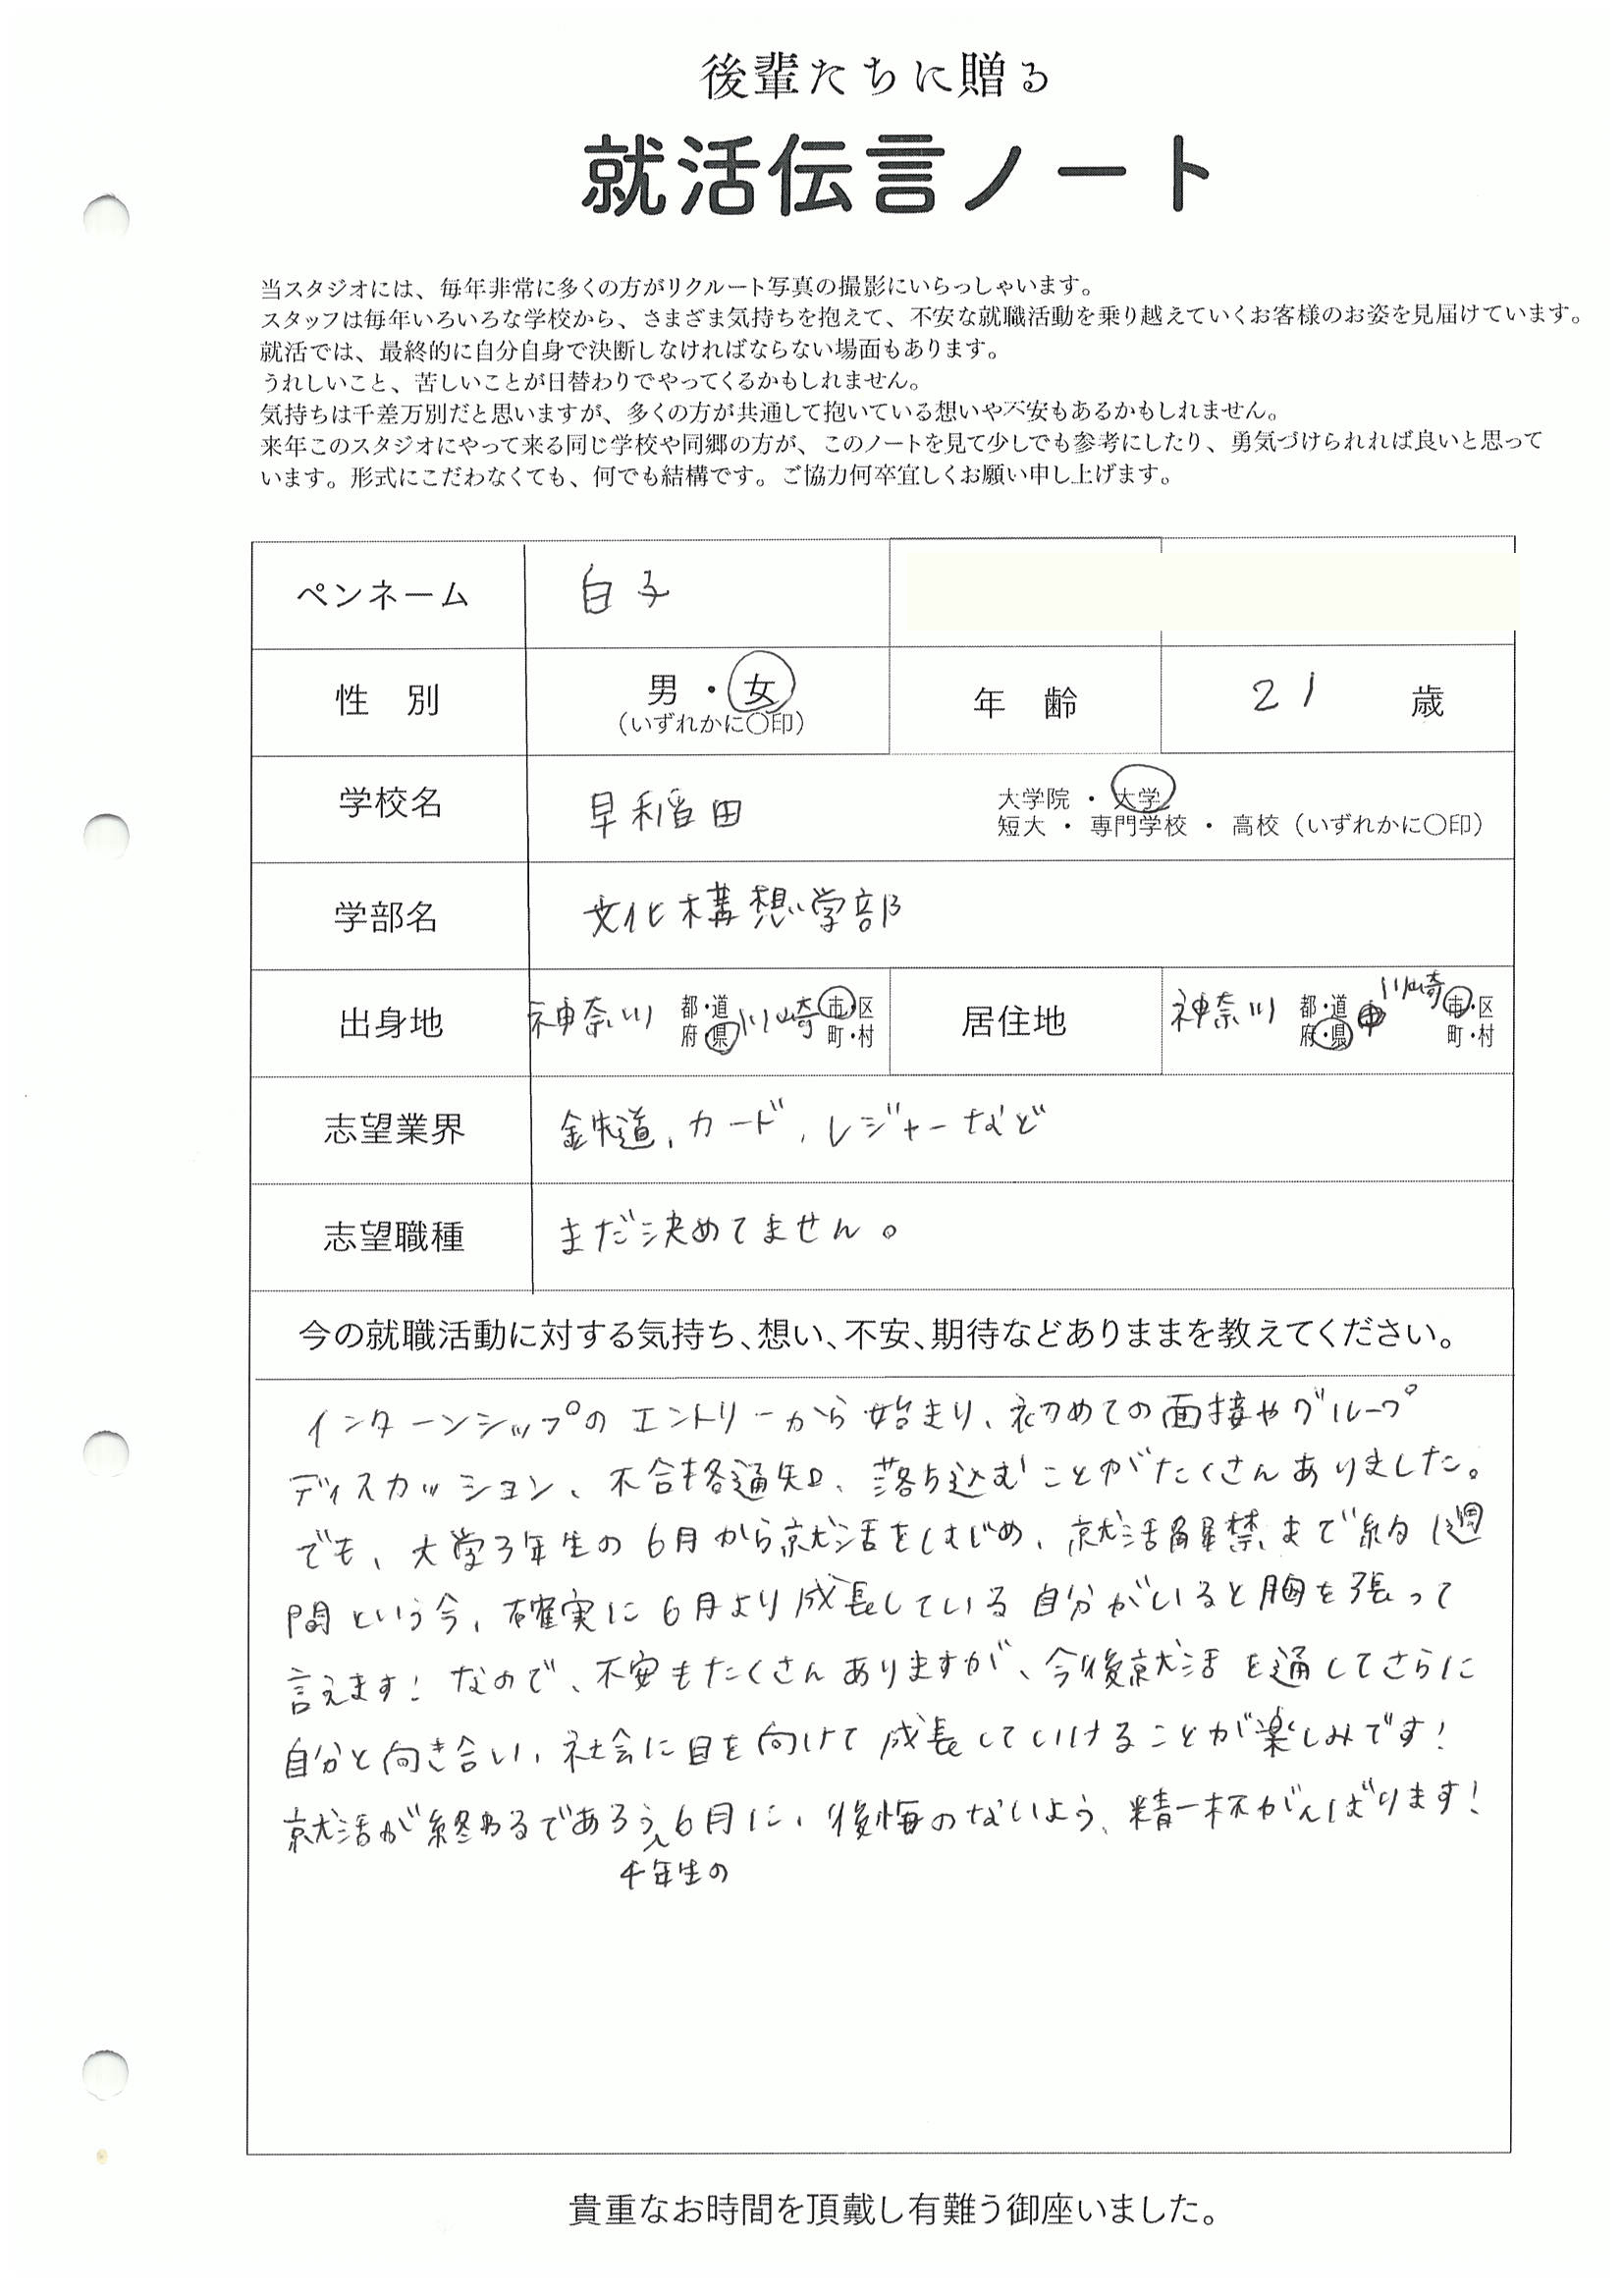 後輩たちに贈る
就活伝言ノート
当スタジオには、毎年非常に多くの方がリクルート写真の撮影にいらっしゃいます。
スタッフは毎年いろいろな学校から、さまざま気持ちを抱えて、不安な就職活動を乗り越えていくお客様のお姿を見届けています。
就活では、最終的に自分自身で決断しなければならない場面もあります。
うれしいこと、苦しいことが日替わりでやってくるかもしれません。
気持ちは千差万別だと思いますが、多くの方が共通して抱いている想いや不安もあるかもしれません。
来年このスタジオにやって来る同じ学校や同郷の方が、このノートを見て少しでも参考にしたり、勇気づけられれば良いと思って
います。形式にこだわなくても、何でも結構です。ご協力何卒宜しくお願い申し上げます。
ペンネーム 白子
性 別 男・女 年 齢 21 歳
(いずれかに〇印)
学校名 早稲田 大学院・大学
短大・専門学校・高校(いずれかに〇印)
学部名 文化構想学部
出身地 神奈川 都・道 川崎 市・区 居住地 神奈川 都・道 川崎 市・区
府・県 町・村 府・県 町・村
志望業界 鉄道、カード、レジャーなど
志望職種 まだ決めてません。
今の就職活動に対する気持ち、想い、不安、期待などありままを教えてください。
インターンシップのエントリーから始まり、初めての面接やグループ
ディスカッション、不合格通知、落ち込むことがたくさんありました。
でも、大学3年生の6月から就活をはじめ、就活解禁まで約1週
間という今、確実に6月より成長している自分がいると胸を張って
言えます!なので、不安もたくさんありますが、今後就活を通してさらに
自分と向き合い、社会に目を向けて成長していけることが楽しみです!
就活が終わるであろう6月に、後悔のないよう、精一杯がんばります!
4年生の
貴重なお時間を頂戴し有難う御座いました。